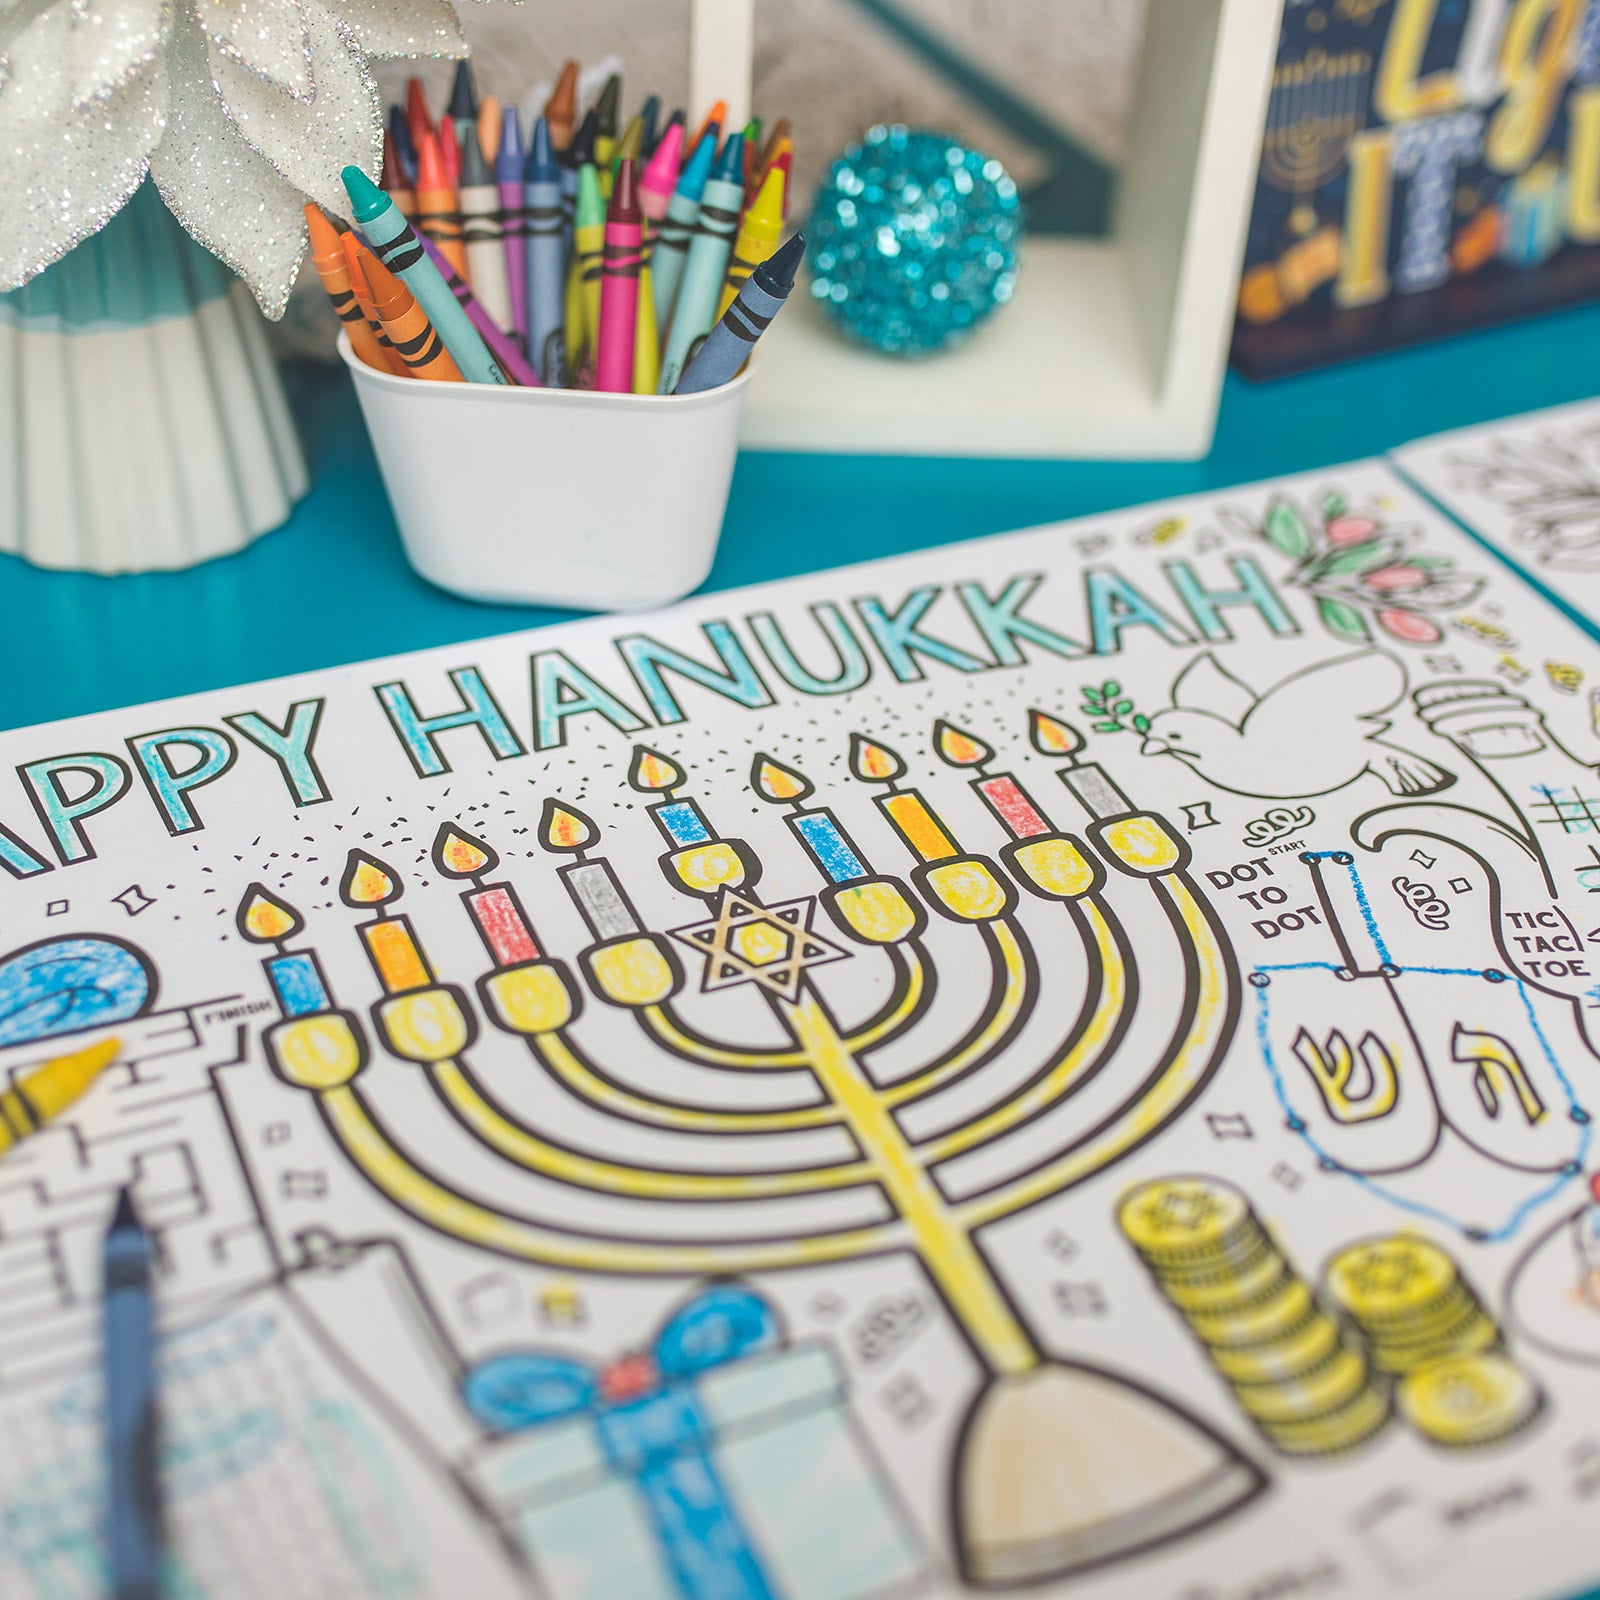 APPY HANUKKAH
START
DOT
TO
DOT
TIC
TAC
TOE
FINISH
ש ה
IT